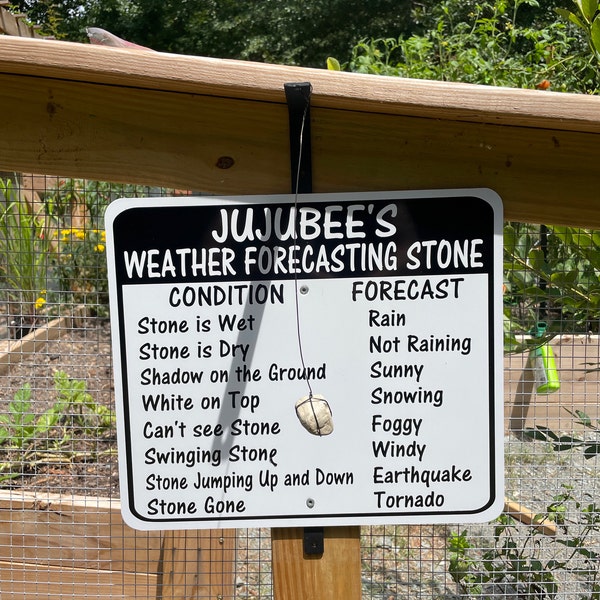 JUJUBEE'S
WEATHER FORECASTING STONE
CONDITION FORECAST
Stone is Wet Rain
Stone is Dry Not Raining
Shadow on the Ground Sunny
White on Top Snowing
Can't see Stone Foggy
Swinging Stone Windy
Stone Jumping Up and Down Earthquake
Stone Gone Tornado